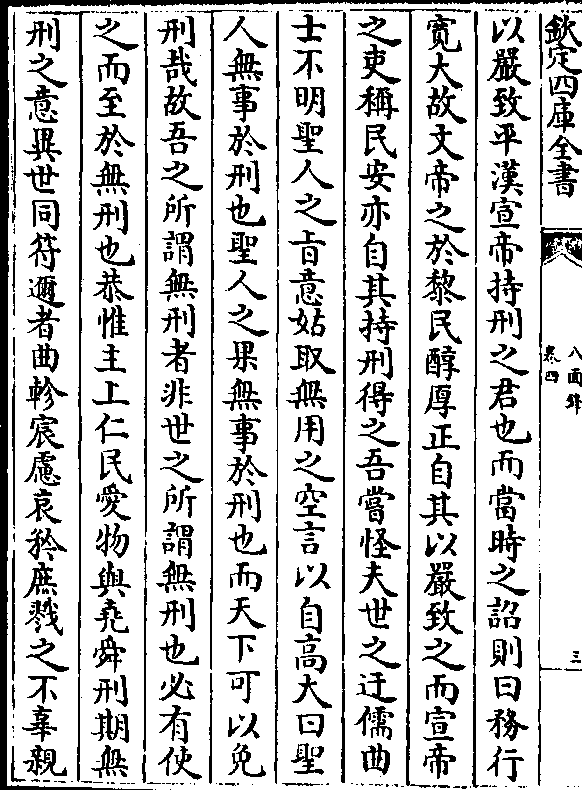 欽定四庫全書
八面鋒
卷四
三
以嚴致平漢宣帝持刑之君也而當時之詔則曰務行
寛大故文帝之於黎民醇厚正自其以嚴致之而宣帝
之吏稱民安亦自其持刑得之吾嘗怪夫世之迂儒曲
士不明聖人之㫖意姑取無用之空言以自高大曰聖
人無事於刑也聖人之果無事於刑也而天下可以免
刑哉故吾之所謂無刑者非世之所謂無刑也必有使
之而至於無刑也恭惟主上仁民愛物與堯舜刑期無
刑之意異世同符邇者曲軫宸慮哀矜庶戮之不辜親